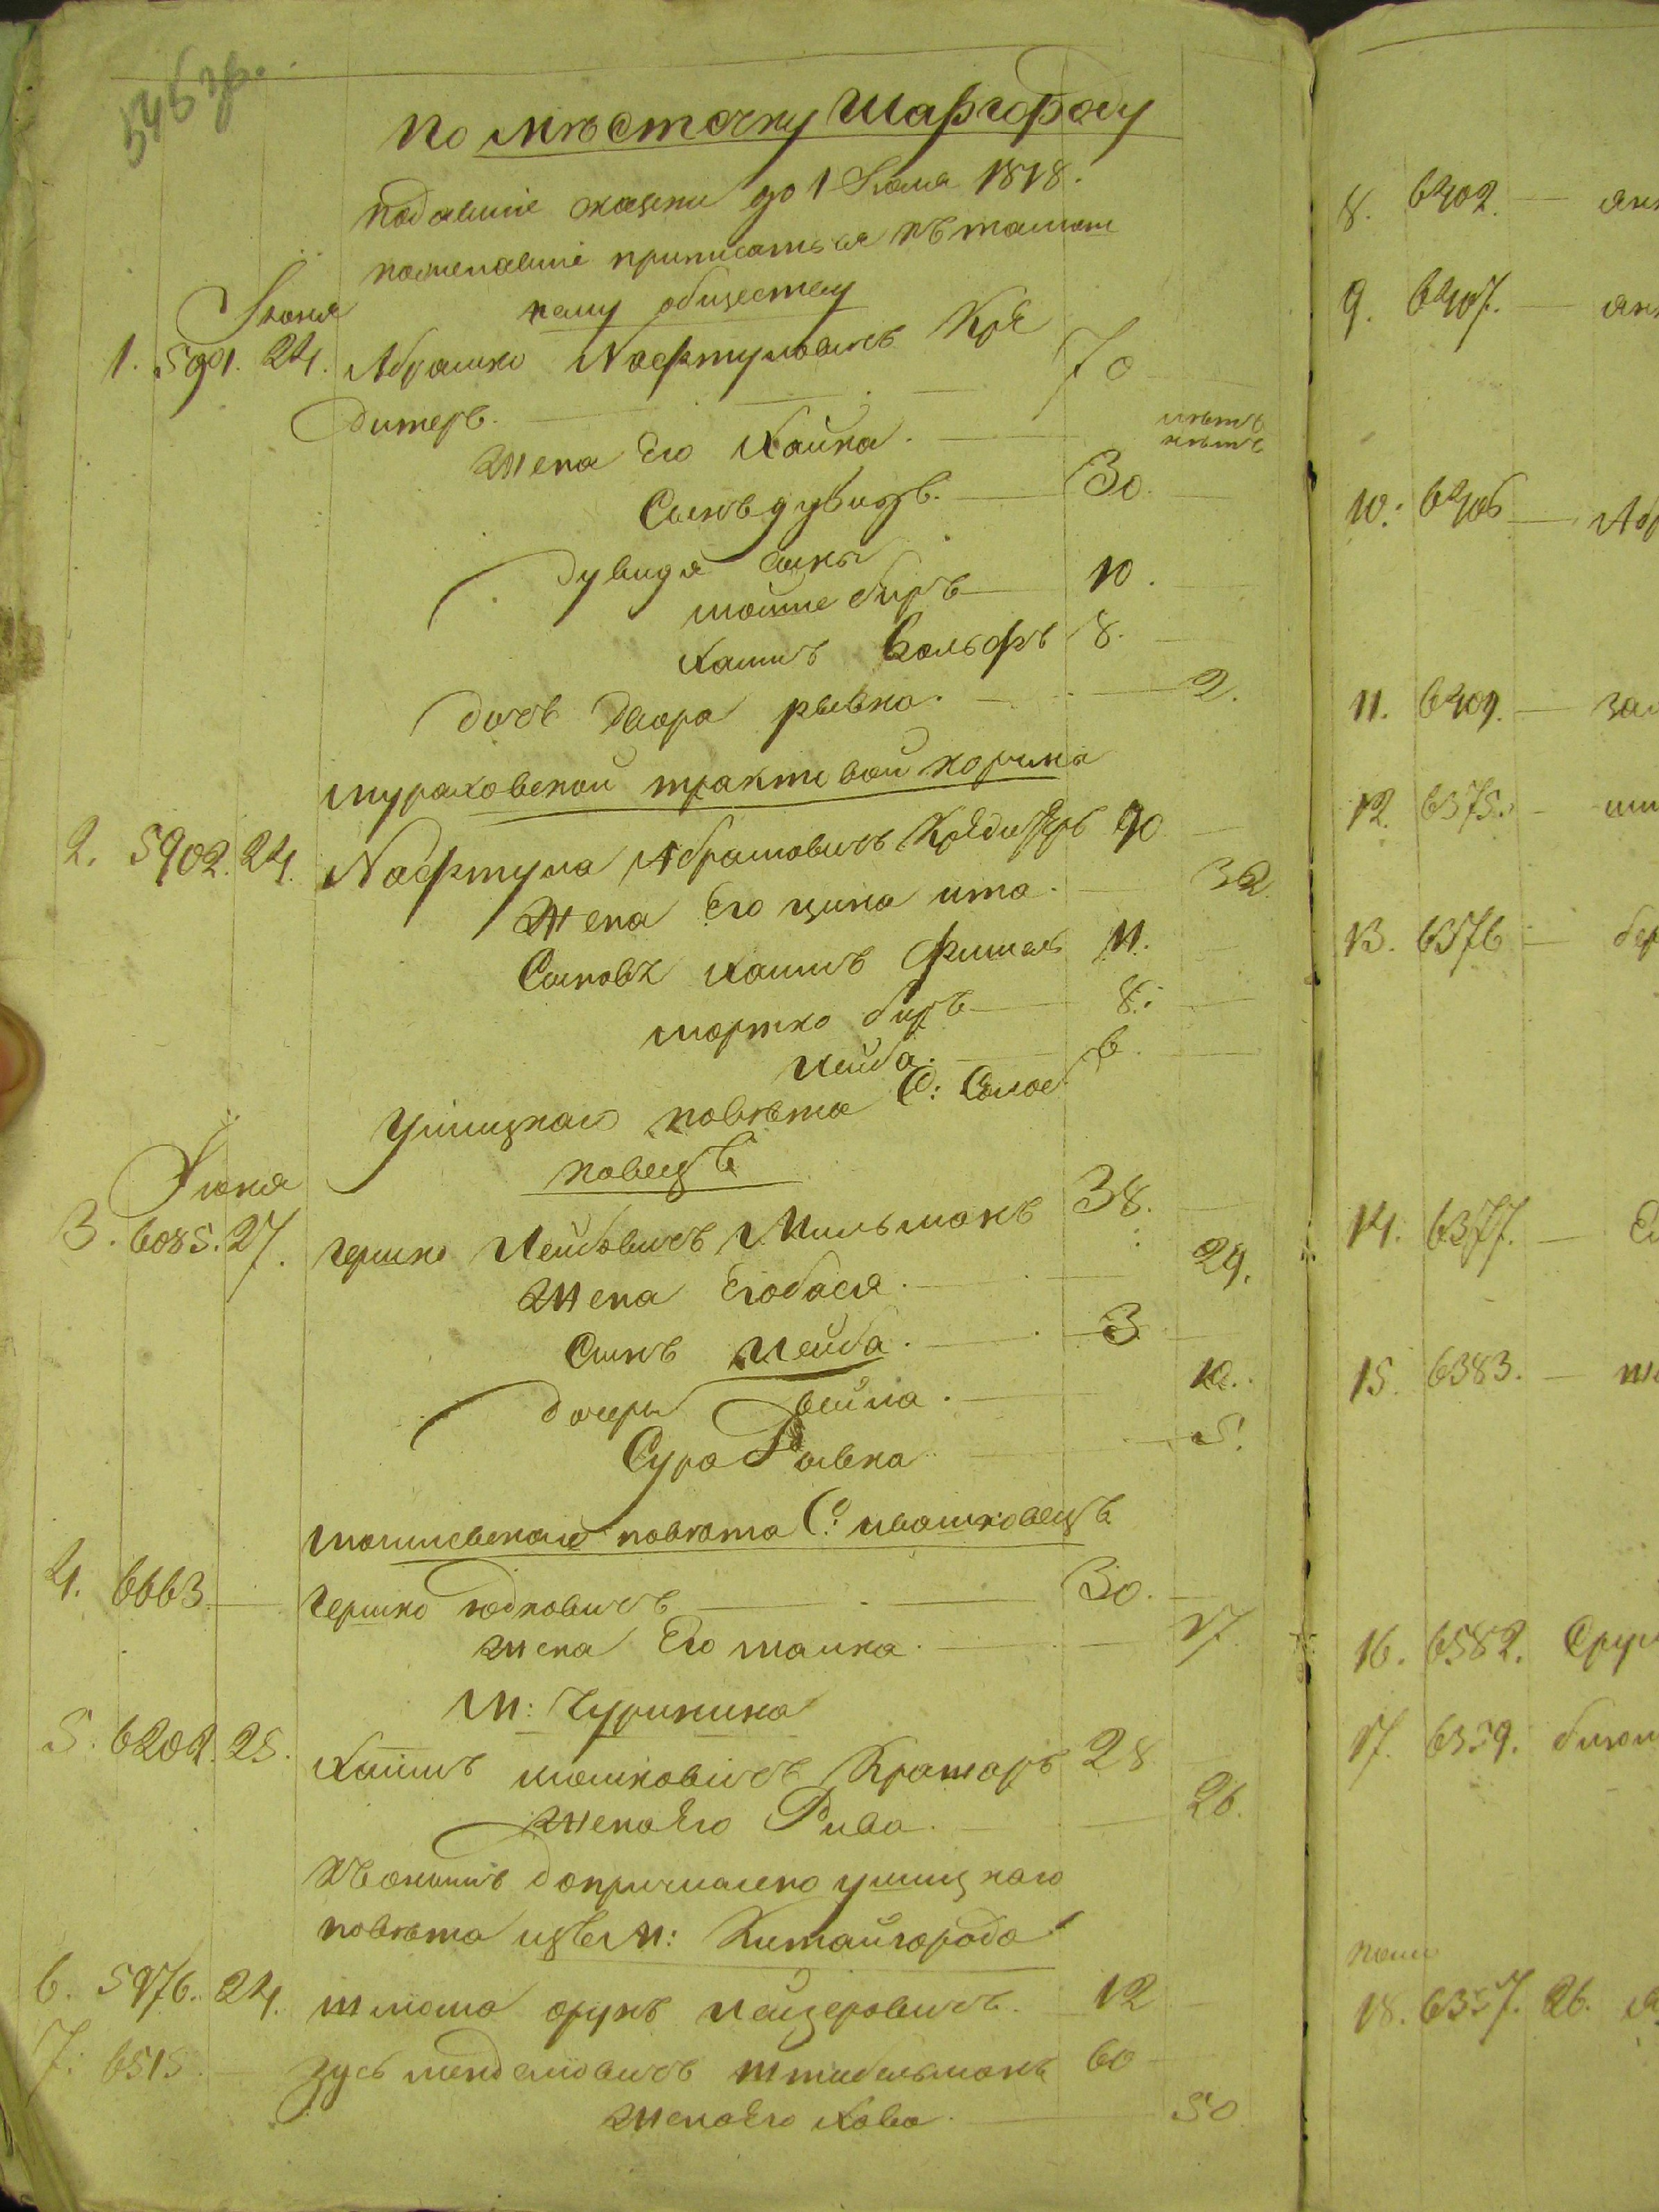 546 зв.
по мѣстечку Шаргороду
подавшіе скаски до 1 Июля 1818.
пожелавшіе приписаться къ тамош
нему обществу
Июня
1. 5901. 24. Абрамко Нафтуловичъ Кре 70
дитеръ.
лѣтъ
нѣтъ
Жена Его Хайка.
Сынъ дувидъ. 30.
дувидя сыны
мошке биръ 10.
Хаимъ Вольфъ 8.
дочь двора рывка. 2.
мураховской трактовой корчмы
2. 5902. 24. Нафтула Абрамовичъ Кредитеръ 40
Жена Его ципа ита. 32
Сыновъя хаимъ фишель 11.
мортко биръ 8.
Лейба. 6.
Ушицкаго повѣта С: Самое
повецъ
Июня
3. 6085. 27. Гершко Лейбовичъ Мильманъ 38.
Жена Его бася. 29.
Сынъ Лейба. 3
дочеры бейла. 10.
Сура Рывка 5.
могилевскаго повѣта С: ивашковецъ
4. 6663. Гершко юдковичъ 30.
жена Его малка. 17
М: Чуринина
5. 6202. 25. Хаимъ мошковичъ Крамаръ 28
Жена Его Рива. 26.
повѣта изъ М: Китайгорода
6. 5976. 24. шлома срулъ Лейзеровичъ. 12
7. 6515. Зусь менделіовичъ 60
Жена Его Хава. 50
8. 6402.
9. 6407.
10. 6406
11. 6409.
12. 6375.
13. 6376
14. 6377.
15. 6383.
16. 6582. Сру
17. 6359.
18. 6357. 26.